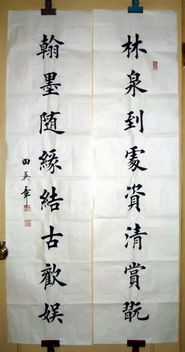 林泉到處資清賞翫
翰墨隨緣結古歡娱
田英章